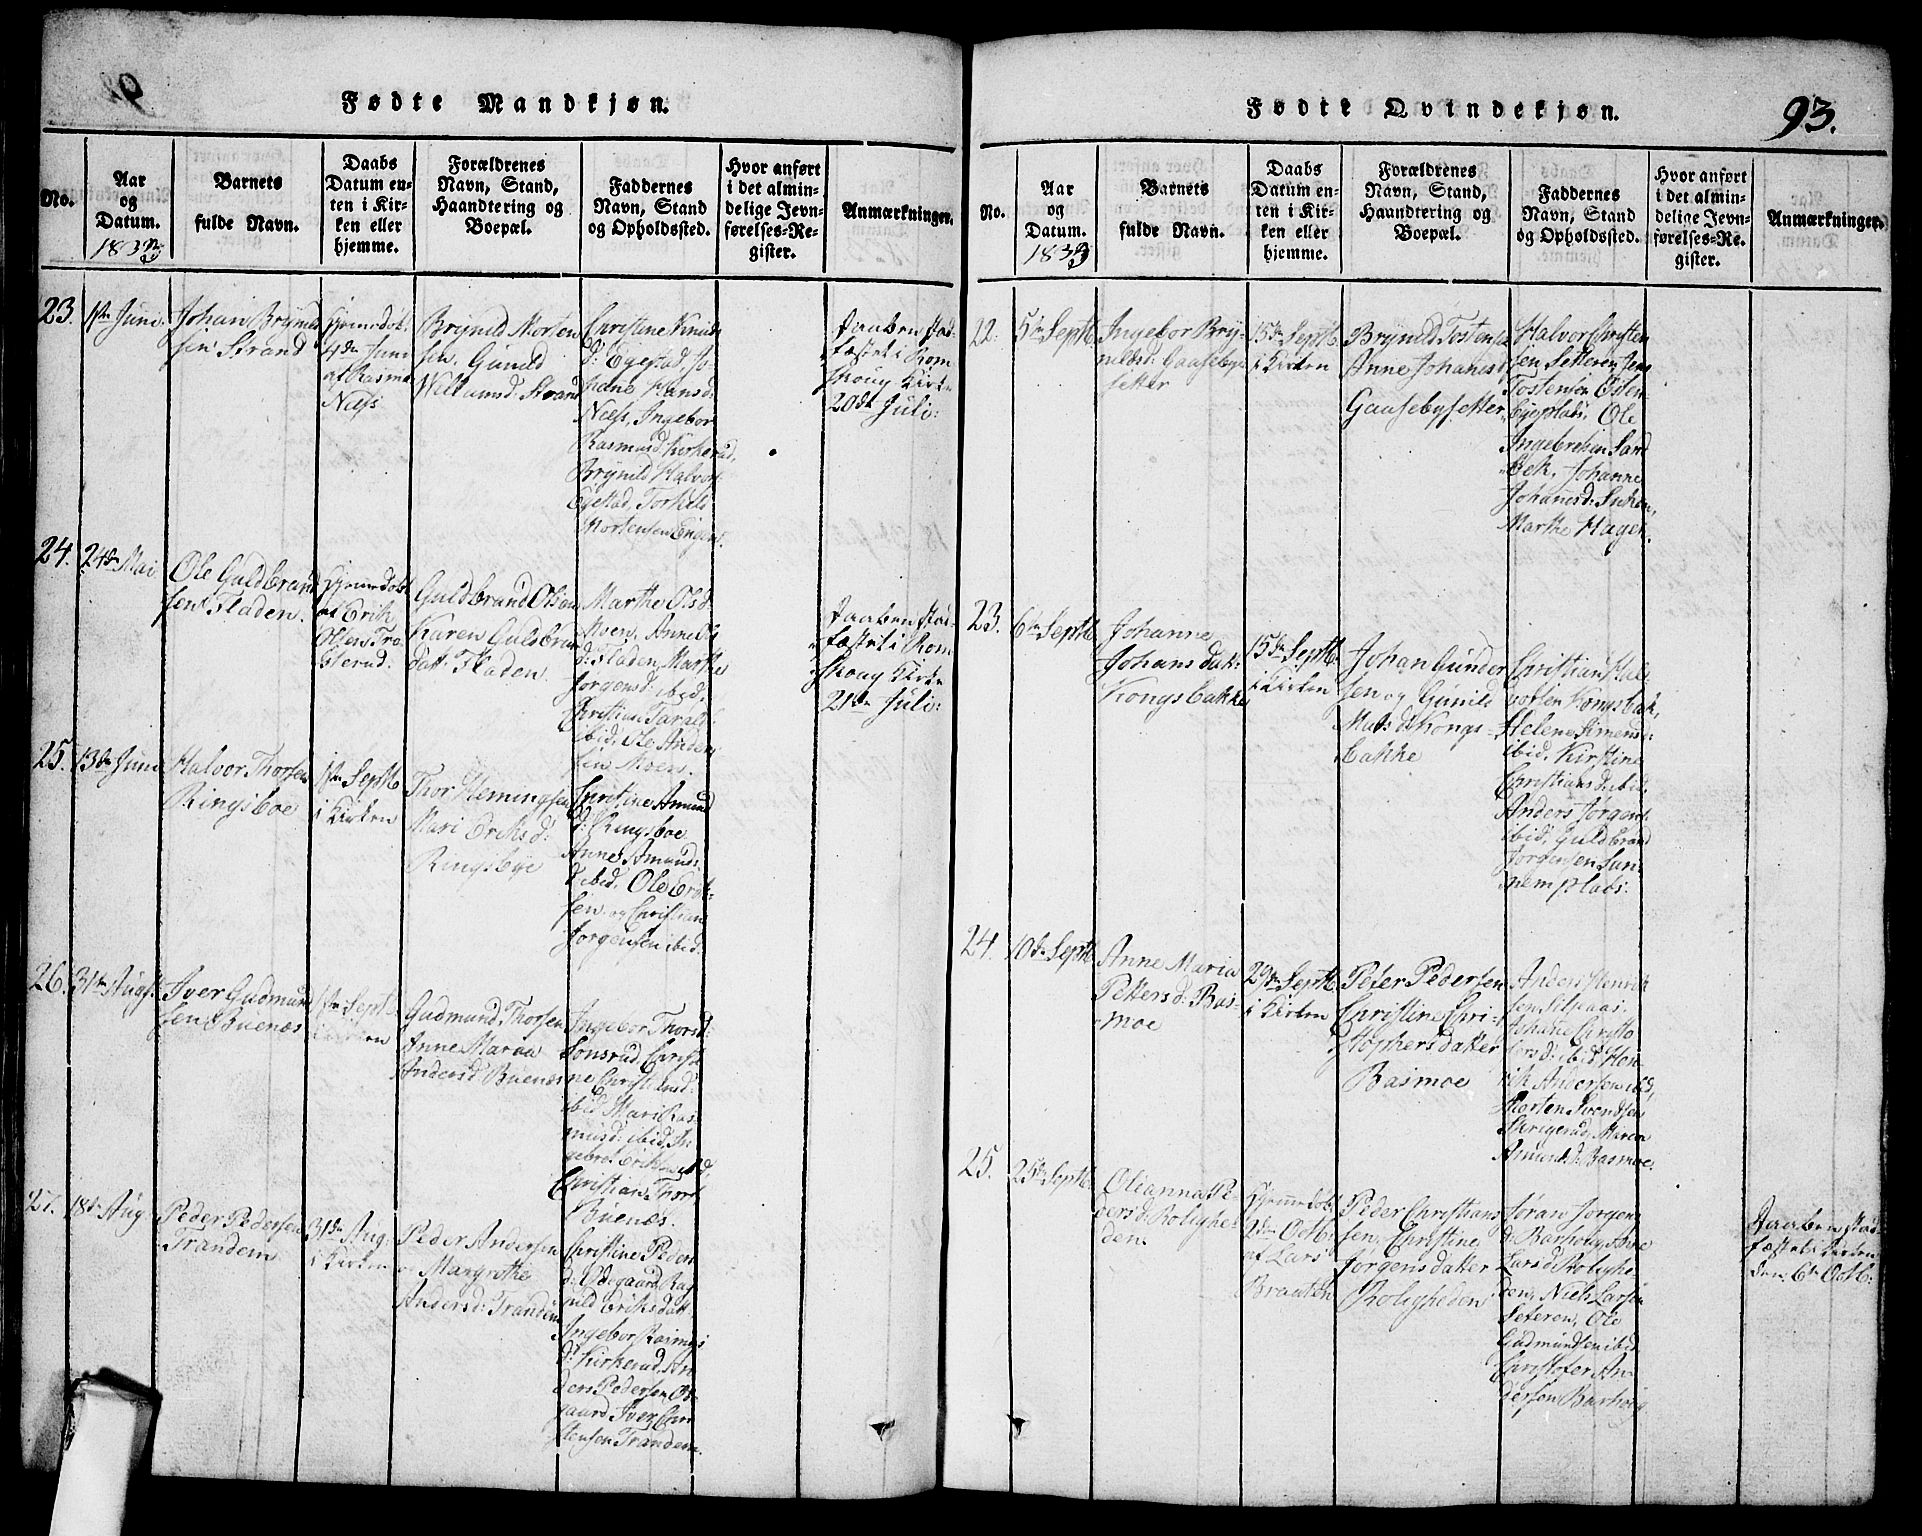 Fødte Mandkjøn.
No.
Aar
og
Datum.
1833
Barnets
fulde Navn.
Daabs
Datum en-
ten i Kir-
ken eller
hjemme.
Forældrenes
Navn, Stand,
Haandtering og
Boepæl.
Faddernes
Navn, Stand
og Opholdssted.
Hvor anført
i det almin-
delige Jevn-
førelses-Re-
gister.
Anmærkninger.
23.
1ste Juni
Johan Brynild
sen Strand
Hjemedøbt
4de Juni
af Rasmus
Næss
Brynild Morten
sen, Gunild
Strand
Christine Knuds
d: Egestad, Jo-
Hansd:
Næss, Ingebor
Rasmusd: Kirkerud,
Brynild Halvors
Egestad, Torkils
Mortensen Engen
Daaben stad-
fæstet i Rom
skoug Kirke
20de Juli:
24.
24de Mai
Ole Guldbrand
sen Fladen.
Hjemedøbt
af Erik
Olsen Tro-
sterud:
Guldbrand Olsen
Karen Guldbran
datt: Fladen.
Marthe Olsd:
Moen, Anne
d: Fladen, Marthe
Jørgensd: ibid,
Christian Tarald
ibid, Ole Anders
sen Moen.
Daaben stad-
fæstet i Rom
skoug Kirke
21de Juli:
25.
13de Juni
Halvor Thorsen
Ringsboe
1ste Septb
i Kirken
Thor Flemingsen
Mari Eriksd:
Ringsbye
Christine Amund
d: Ringsboe
Anne Amunds
d: ibid, Ole Erik-
sen og Christian
Jørgensen ibid:
26.
31te Augst
Iver Gudmund
sen Buenæs
1ste Septb
i Kirken
Gudmund Thorsen
Anne Maria
Andersd: Buenæs
Ingebor Thorsd:
Sonsrud, Christi
ne Christiansd:
ibid Mari Ras-
musd: ibid, In
gebret Eriksen ibid,
Christian Thors
Buenæs.
27.
18de Aug
Peder Pedersen
Trandem
31de Aug
i Kirken
Peder Andersen
Margrethe
Andersd: Trandem
Christine Peders
d: Ødegaard, Rag
nild Eriksdatt
Ingebor Rasmus
d: Kirkerud, An
ders Pedersen Øde-
gaard, Iver Chri
stensen Trandem.
Fødte Qvindekjøn.
93.
No.
Aar
og
Datum.
1833
Barnets
fulde Navn.
Daabs
Datum en-
ten i Kir-
ken eller
hjemme.
Forældrenes
Navn, Stand,
Haandtering og
Boepæl.
Faddernes
Navn, Stand
og Opholdssted.
Hvor anført
i det almin-
delige Jevn-
førelses-Re-
gister.
Anmærkninger.
22.
5te Septb
Ingebor Bry-
nildsd: Gaasebye
setter
15de Septb.
i Kirken
Brynild Tostensen
Anne Johanesd
Gaasebysetter
Halvor Christen
sen Setteren, Jens
Tostensen Østen
Eyeplads, Ole
Ingebretsen Sand
bek, Johanne
Johanesd:
Marthe Hagen.
23.
6te Septb
Johanne
Johans dat:
Kongsbakke
15de Septb.
i Kirken
Johan Gunder
sen og Gunild
Mats d: Kongs-
bakke
Christian Hal
vorsen Kongsbak,
Helene Simensd:
ibid, Kirstine
Christiansd: ibid,
Anders Jørgens
ibid, Guldbrand
Jørgensen Sun-
nemplads.
24.
10de Septb
Anne Maria
Petters d: Bas-
moe
29de Septb.
i Kirken
Peter Pedersen
Christine Chri-
stophersdatter
Basmoe
Anders Henrik
sen
Johane Christo
fersd: ibid, Hen-
rik Andersen ibid,
Morten Svendsen
Maren
Amunds d: Basmoe.
25.
25de Septb.
Oleanna Pe-
dersd: Rolighe
den.
Hjemmedøbt
2den Octb:
af Lars
Braaten
Peder Christians
sen, Christine
Jørgensdatter
Roligheden
Jøran Jørgens
d: Barhoug,
Larsd: Rolighe
den, Niels Larsen
Seteren, Ole
Gudmundsen ibid
Christofer An-
dersen Barhoug
Daaben stad-
fæstet i Kirken
den 6te Octb: